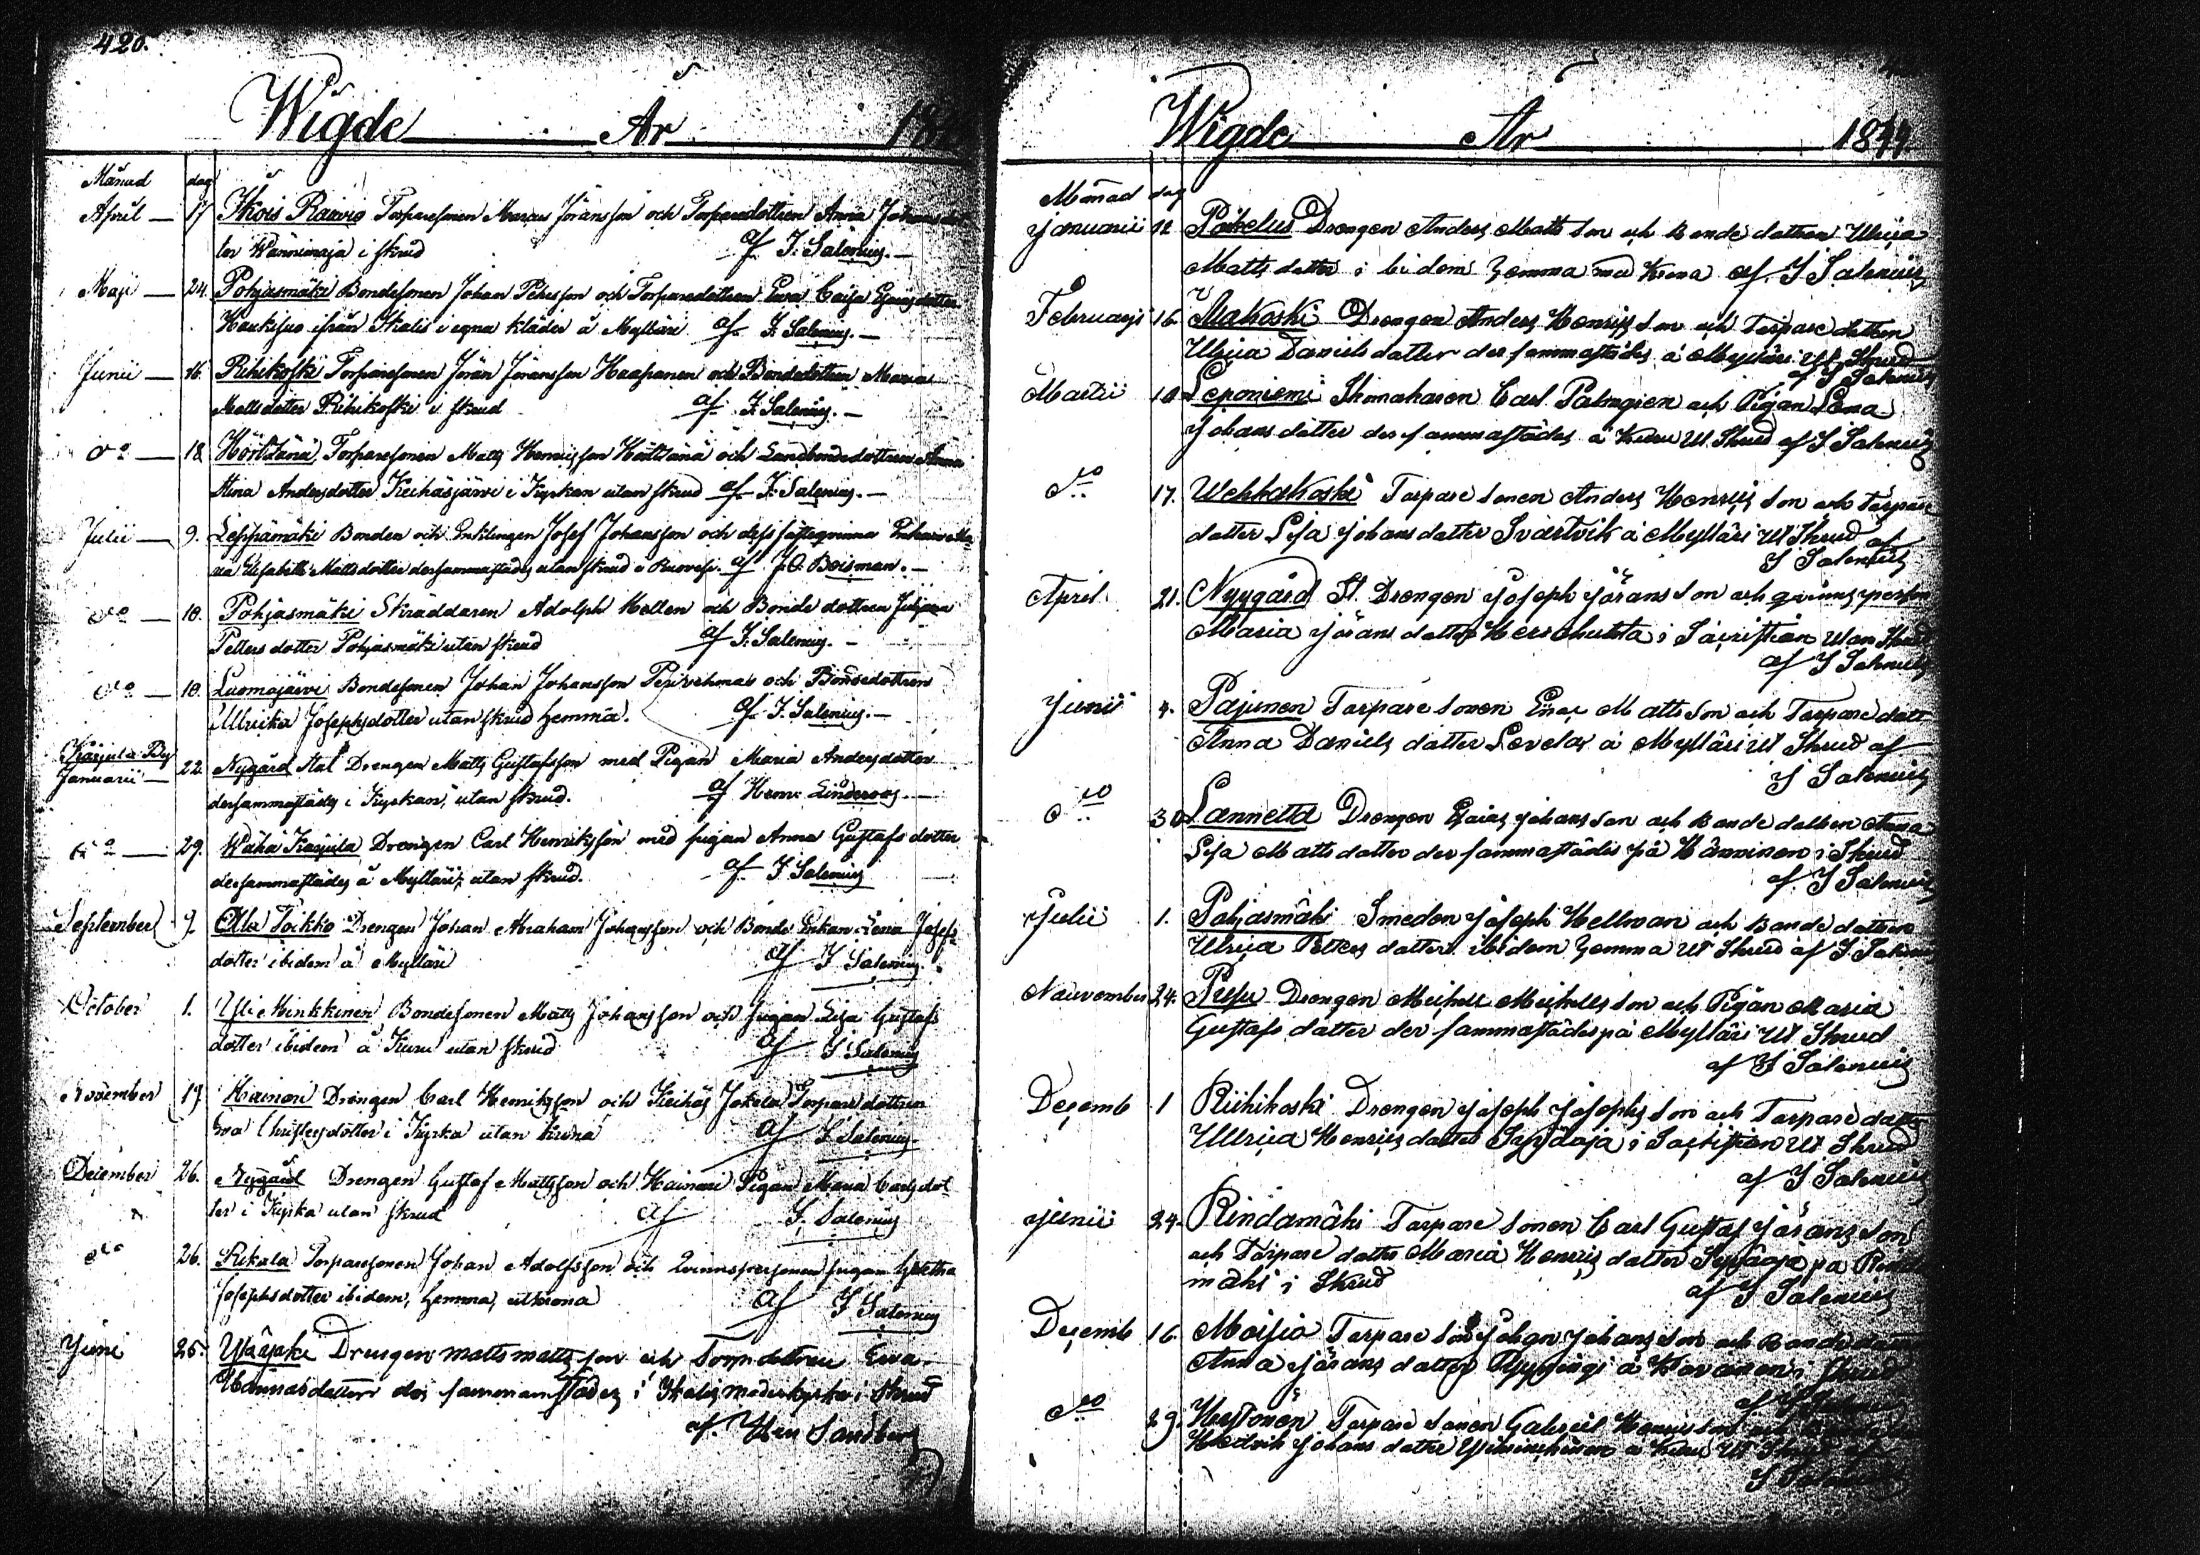 420.
Wigde År 18
Månad dag
April 17 Ikois Raivio Torparesonen Marcus Jöransson och Torparedottren Anna Johansdot-
ter Wännimaja i skrud af J. Salenius.
Maji 24 Pohjasmäki Bondesonen Johan Pettersson och Torparedottren Ewa Caisa
ifrån Ikalis i egna kläder å Mylläri af J. Salenius.
Junii 16 Riihikoski Torparesonen Jöran Jöransson Haapanen och Bondedottren Maria
Mattsdotter Riihikoski i skrud af J. Salenius.
do 18 Torparesonen Matts Henricsson och Landbondedottren Anna
Stina Andersdotter Keihäsjärvi i Kyrkan utan skrud af J. Salenius.
Julii 9. Leppämäki Bonden och Enklingen Josef Johansson och
Mattsdotter dersammastädes utan skrud i af J. O. Boisman.
dto 10. Pohjasmäki Skräddaren Adolph Hellen och Bonde dottren
Petters dotter Pohjasmäki utan skrud af J. Salenius.
dto 10. Luomajärvi Bondesonen Johan Johansson och Bondedottren
Ulrika Josephsdotter utan skrud hemma. af J. Salenius.
Karjula By
Januarii 22. Nygård Drengen Matts Gustafsson med Pigan Maria Andersdotter
dersammastädes i Kyrkan, utan skrud. af Henr. Linderoos
dto 29. Wähä Karjula Drengen Carl Henriksson med pigan Anna Gustafs dotter
dersammastädes å Mylläri, utan skrud. af J Salenius
September 9 Ala Poikko Drengen Johan Abraham Johansson och Bonde Enkan Lena Josefs
dotter ibidem å Mylläri af J Salenius.
October 1. Yli Minkkinen Bondesonen Matts Johansson och pigan Lisa Gustafs
dotter ibidem å Kuru utan skrud af J Salenius
November 19. Hainari Drengen Carl Henriksson och Keihäs Jokela Torpare dottren
Ewa Christersdotter i Kyrka utan krona af J Salenius
December 26. Nygård Drengen Gustaf Mattsson och Hainari Pigan Maria Carlsdot-
ter i Kyrka utan skrud af J. Salenius
dto 26. Rikala Torparesonen Johan Adolfsson och Qvinnspersonen pigan Gretha
Josephsdotter ibidem, hemma, ut krona af J Salenius
Juni 25. Drengen matts mattsson och Torp dottren Ewa
dotter der sammanstädes i Ikalis moderkyrka i Skrud
af. Hen Sandberg
Wigde År 1844
Månad dag
Januarii 12 Poikelus Drengen Anders Matts son och Bonde dottren Ulrica
Matts dotter i bidem hemma med Krona af J Salenius
Februarii 16. Makoski Drengen Anders Henrics son och Torpare dottren
Ulrica Daniels dotter der sammastädes å Mylläri ut Skrud
af J Salenius
Martii 10 Leponiemi Skomakaren Carl Palmgren och Pigan Lena
Johans dotter der sammastädes å Kuru ut Skrud af J Salenius
dto 17. Wehkakoski Torpare sonen Anders Henrics son och Torpare
dotter Lisa Johans dotter Svartvik å Mylläri ut Skrud af
J Salenius
April 21. Nyygård St. Drengen Joseph Jörans son och qvins person
Maria Jörans dotter i Sacristian utan Skrud
af J Salenius
Junii 4. Pajunen Torpare sonen Enoc Matts son och Torpare dott
Anna Daniels dotter Levelax å Mylläri ut Skrud af
J Salenius
dto 30 Lannetta Drengen Esaias Johans son och Bonde dottren Anna
Lisa Matts dotter der sammastädes på Hänninen i Skrud
af J Salenius
Julii 1. Pohjasmäki Smeden Joseph Hellman och Bonde dottren
Ulrica Petters dotter ibidem hemma ut Skrud af J Salenius
Nauvember 24. Pusu Drengen Michell Michells son och Pigan Maria
Gustafs dotter der sammastädes på Mylläri ut Skrud
af J Salenius
Decemb 1 Riihikoski Drengen Joseph Josephs son och Torpare dotter
Ulrica Henrics dotter Seppäoja i Sacristian ut Skrud
af J Salenius
Junii 24. Rindamäki Torpare sonen Carl Gustaf Jörans son
och Torpare dotter Maria Henrics dotter Seppäoja på Rinda
mäki i Skrud af J Salenius
Decemb 16 Moisio Torpare son Johan Johans son och Bonde
Anna Jörans dotter å Kovanen i Skrud
af J Salenius
dto 29. Hestonen Torpare sonen Gabriel Henrics son och
Hedvik Johans dotter å Kuru ut Skrud af
J Salenius